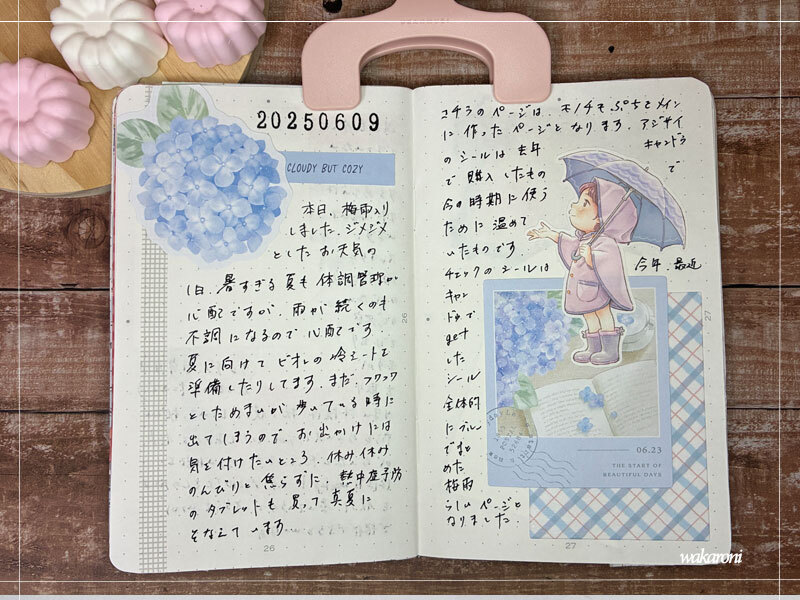 20250609
CLOUDY BUT COZY
本日、梅雨入り
しました。ジメジメ
としたお天気の
1日。暑すぎる夏も体調管理が
心配ですが、雨が続くのも
不調になるので心配です。
夏に向けてビオレの冷シートを
準備したりしてます。まだ、フワッフワッ
としためまいが歩いている時に
出てしまうので、お出かけには
気を付けたいところ。休み休み
のんびりと焦らずに。熱中症予防
のタブレットも買って真夏に
そなえています
26
26
コチラのページは、モノチモぷちをメイン
に作ったページとなります。アジサイ
のシールは去年
キャンドゥ
で
で購入したもの
今の時期に使う
ために温めて
いたものです。
チェックのシールは
今年、最近
キャン
ドゥで
get
した
シール
全体的
にブルー
でまと
めた
梅雨
らしいページと
なりました。
06.23
THE START OF
BEAUTIFUL DAYS
27
27
wakaroni